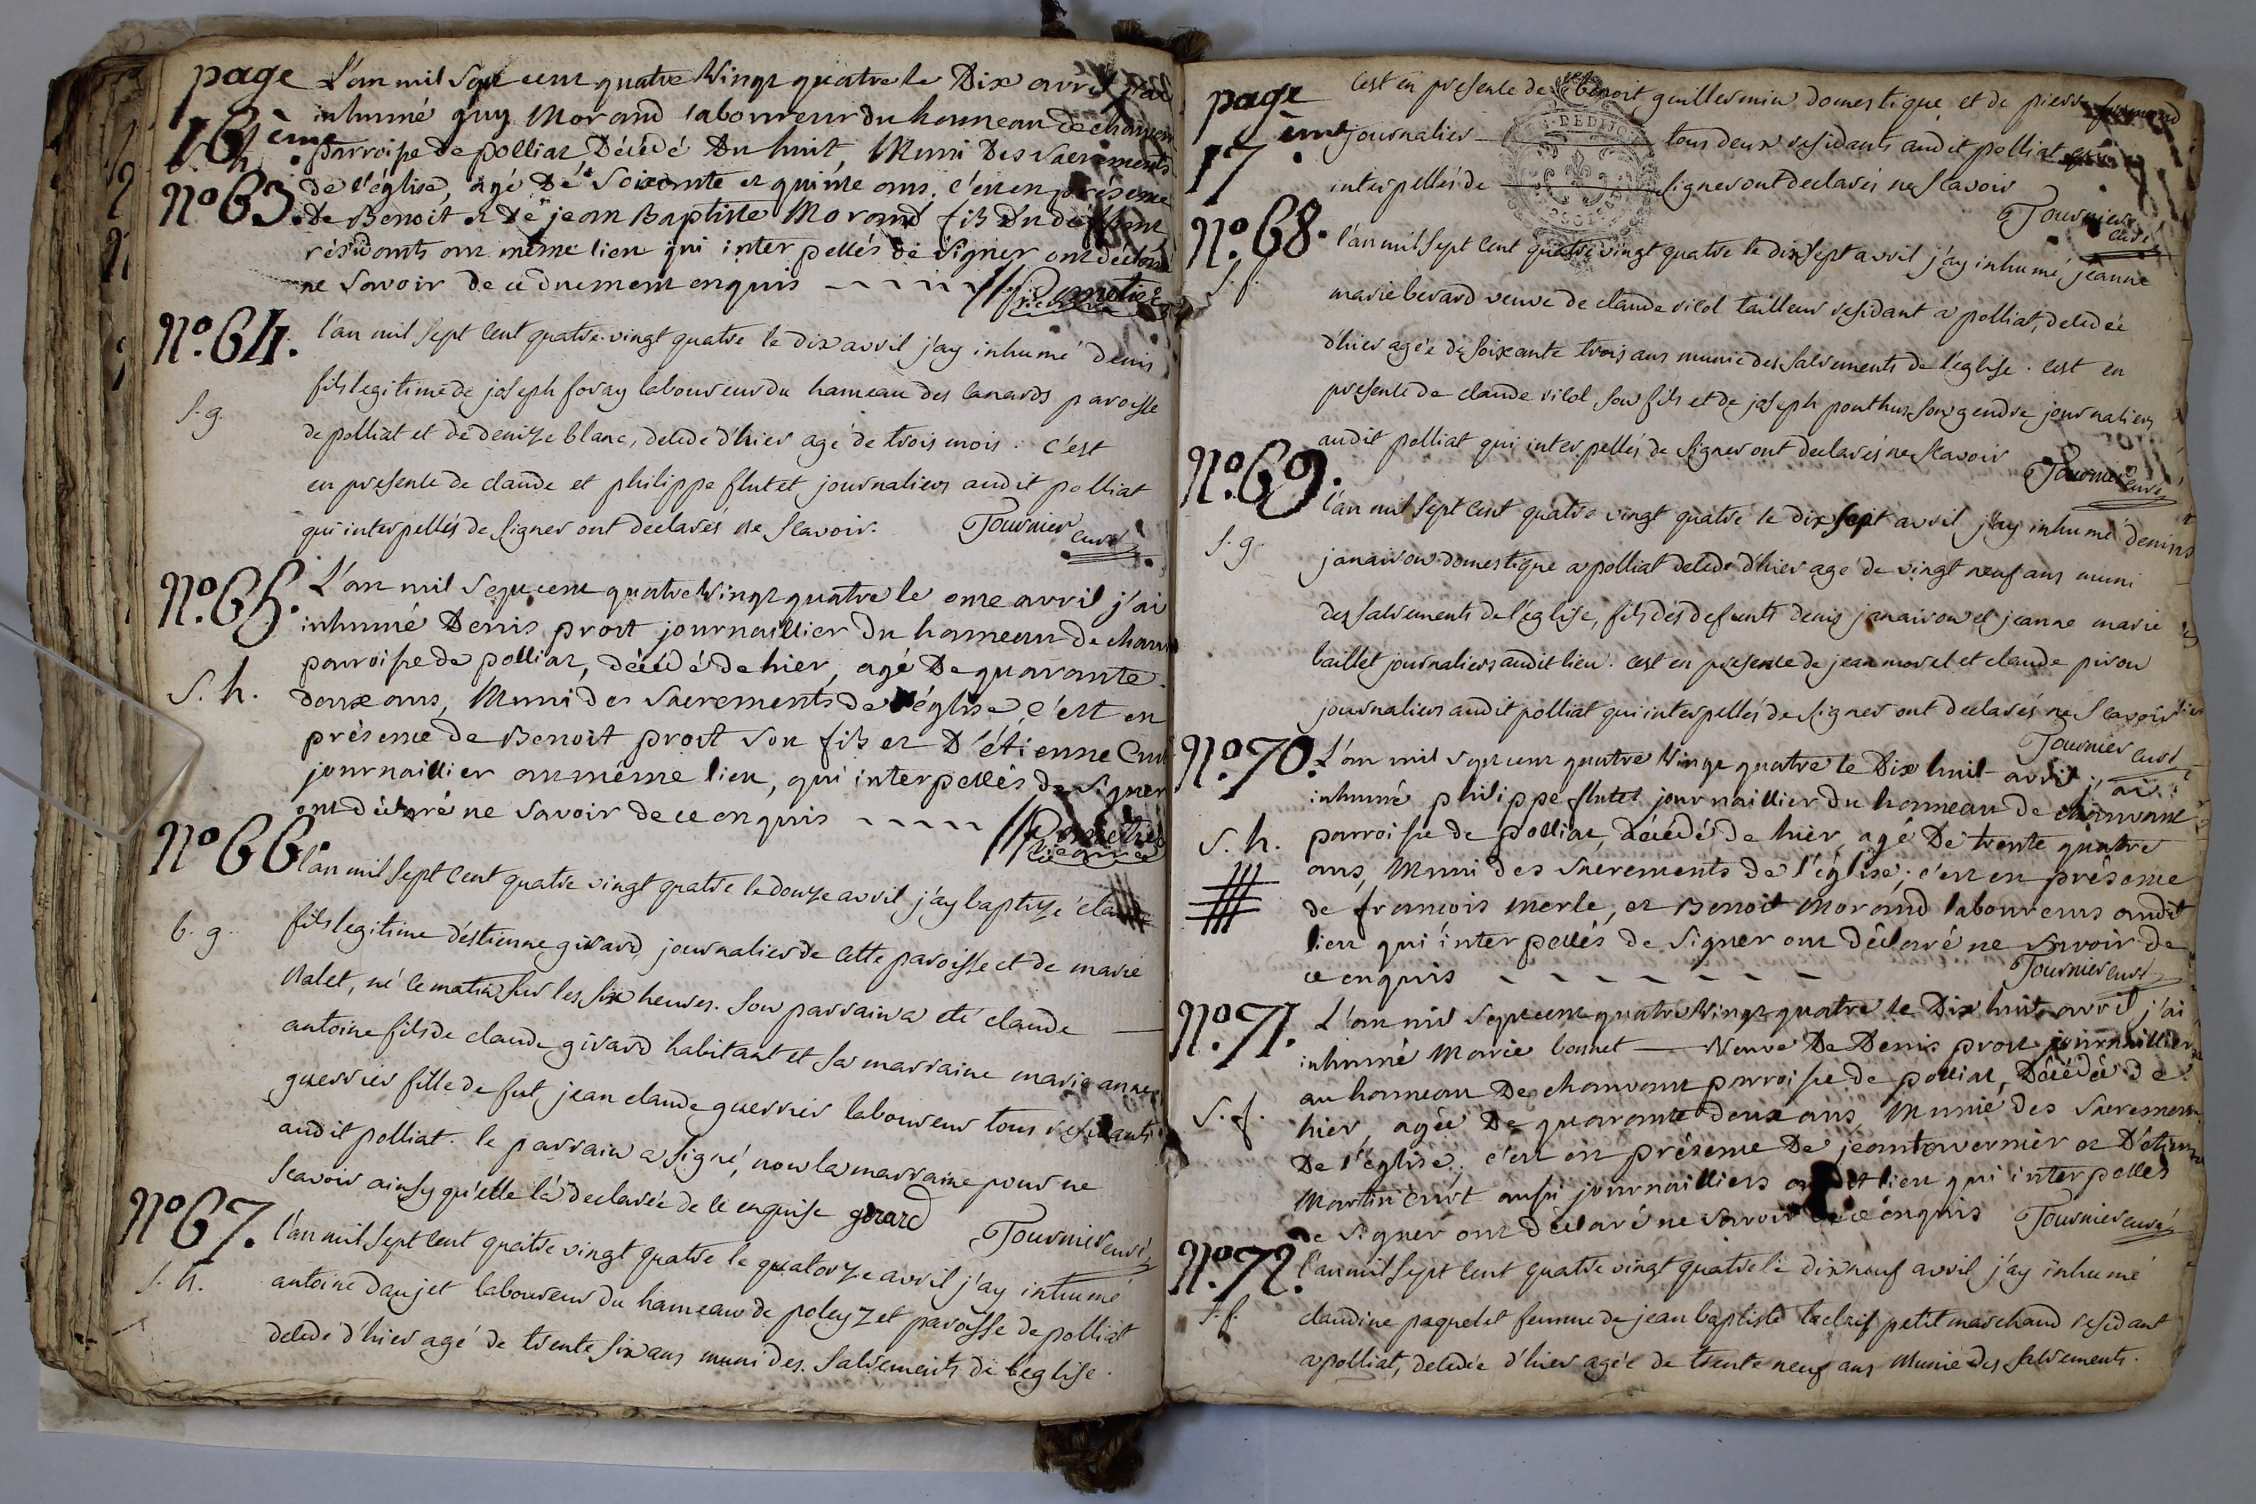 page
16ème
L'an mil sept cent quatre vingt quatre le Dix avril j'ai
inhumé guy Morand laboureur du hameau de
parroisse de polliat, Décédé Du huit, Muni Des Sacrements
No 63.
de l'église, agé De Soixante et quinze ans, c'est en présence
De Benoit et De jean Baptiste Morand fils Du défunt
résidants au même lieu qui interpellés de signer ont déclaré
ne Savoir de ce dûement enquis
No. 64.
l'an mil sept cent quatre-vingt quatre le dix avril j'ay inhumé denis
fils legitime de joseph foray laboureur du hameau des lanards paroisse
s. g.
de polliat et de denize blanc, decede d'hier agé de trois mois. c'est
en presence de claude et philippe flutet journaliers audit polliat
qui interpellés de signer ont declarés ne scavoir. Tournier curé
No. 65.
L'an mil sept cent quatre Vingt quatre le onze avril j'ai
inhumé Denis prost journaillier du hameau de
parroisse de polliat, décédé de hier, agé De quarante
S. h.
deux ans, Muni des Sacrements de l'église, c'est en
présence de Benoit prost son fils et D'étienne
journaillier au même lieu, qui interpellés de signer
ont déclaré ne Savoir de ce enquis
No 66.
l'an mil sept cent quatre vingt quatre le douze avril j'ay baptizé
b. g.
fils legitime d'éstienne girard journalier de cette paroisse et de marie
Ralet, né ce matin sur les six heures. son parrain a eté claude
antoine fils de claude girard habitant et sa marraine marie anne
guerrier fille de fut jean claude guerrier laboureur tous residants
audit polliat. le parrain a signé, non la marraine pour ne
scavoir ainsy qu'elle l'a declarée de ce enquise girard
Tournier curé
No 67.
l'an mil sept cent quatre vingt quatre le quatorze avril j'ay inhumé
s. h.
antoine daujet laboureur du hameau de poleyzet paroisse de polliat
decede d'hier agé de trente six ans muni des sacrements de l'eglise.
page
17ème
c'est en presence de Benoit guillermin domestique et de pierre
journalier tous deux residants audit polliat
interpellés de signer ont declarés ne scavoir
Tournier curé
No. 68.
l'an mil sept cent quatre vingt quatre le dix sept avril j'ay inhumé jeanne
s. f.
marie berard veuve de claude vicol tailleur residant a polliat, decedée
d'hier agée de soixante trois ans munie des sacrements de l'eglise. c'est en
presence de claude vicol son fils et de joseph ponthus son gendre journaliers
audit polliat qui interpellés de signer ont declarés ne scavoir
Tournier curé
No. 69.
l'an mil sept cent quatre vingt quatre le dix sept avril j'ay inhumé denis
s. g.
janairon domestique a polliat decede d'hier age de vingt neuf ans muni
des sacrements de l'église, fils des defunts denis janairon et jeanne marie
baillet journaliers audit lieu. c'est en presence de jean morel et claude piron
journaliers audit polliat qui interpellés de signer ont declarés ne scavoir
Tournier curé
No. 70.
L'an mil Sept cent quatre Vingt quatre le Dix huit avril j'ai
inhumé philippe flutet journaillier du hameau de chanvant
S. h.
parroisse de polliat, décédé de hier, agé De trente quatre
ans, Muni des Sacrements de l'église; c'est en présence
de francois Merle, et Benoit Morand laboureurs audit
lieu qui interpellés de signer ont déclaré ne Savoir de
ce enquis
Tournier curé
No. 71.
L'an mil Sept cent quatre Vingt quatre le Dix huit avril j'ai
inhumé Marie bonnet Veuve De Denis prost journaillier
au hameau De chanvant parroisse de polliat, Décédée de
S. f.
hier, agée De quarante deux ans, Munie des Sacrements
De l'église; c'est en présence De jean tavernier et D'étienne
Martin curt aussi journailliers audit lieu qui interpellés
de signer ont déclaré ne Savoir de ce enquis
Tournier curé
No. 72.
l'an mil sept cent quatre vingt quatre le dix neuf avril j'ay inhumé
s. f.
claudine paquelet femme de jean baptiste petit marchand residant
a polliat, decedée d'hier agée de trente neuf ans Munie des sacrements.